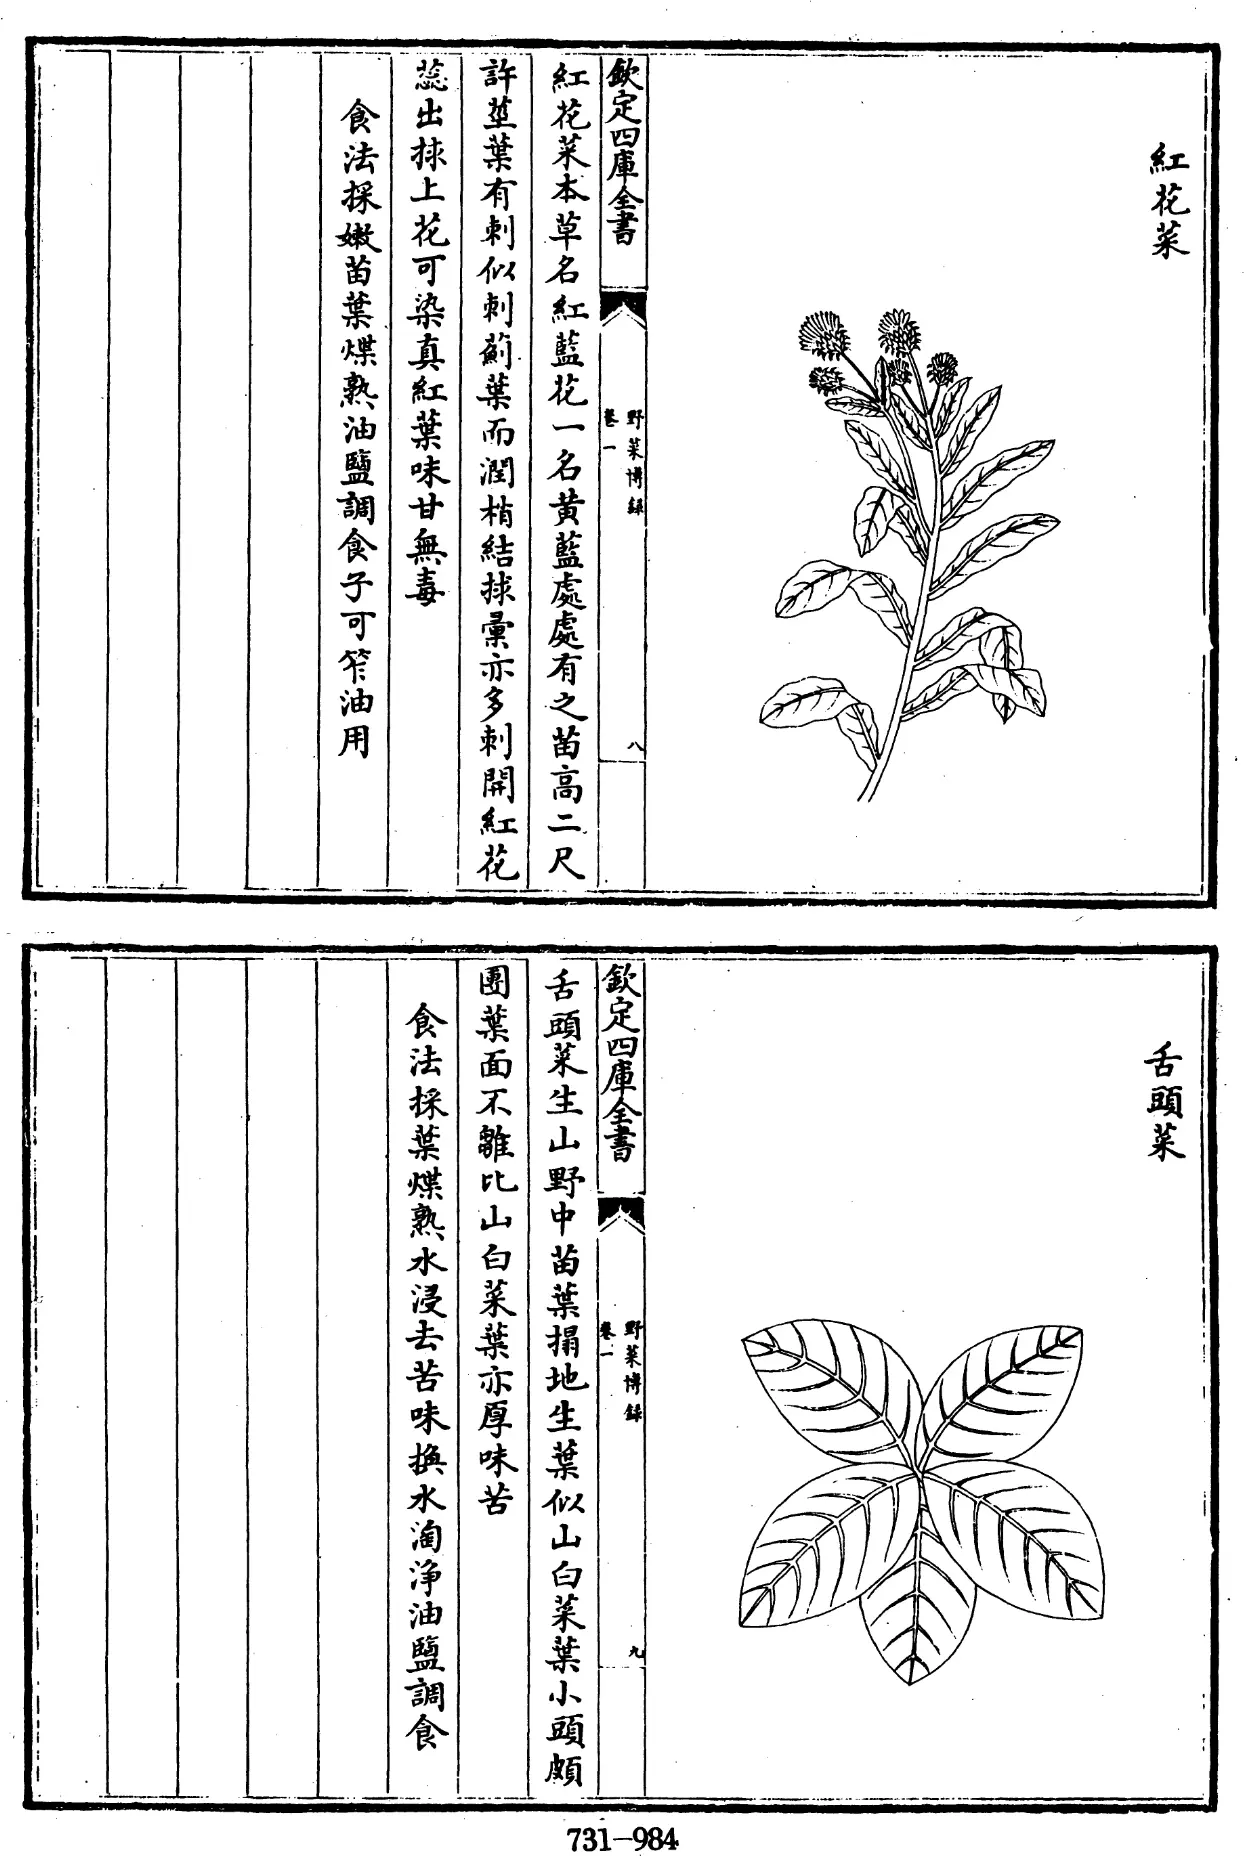 紅花菜
欽定四庫全書
野菜博録
卷一
八
紅花菜本草名紅藍花一名黄藍處處有之苗高二尺
許莖葉有刺似刺薊葉而潤梢結捄彚亦多刺開紅花
蕊出捄上花可染真紅葉味甘無毒
食法採嫩苗葉煠熟油鹽調食子可笮油用
舌頭菜
欽定四庫全書
野菜博録
卷一
九
舌頭菜生山野中苗葉搨地生葉似山白菜葉小頭頗
團葉面不皺比山白菜葉亦厚味苦
食法採葉煠熟水浸去苦味換水淘淨油鹽調食
731-984